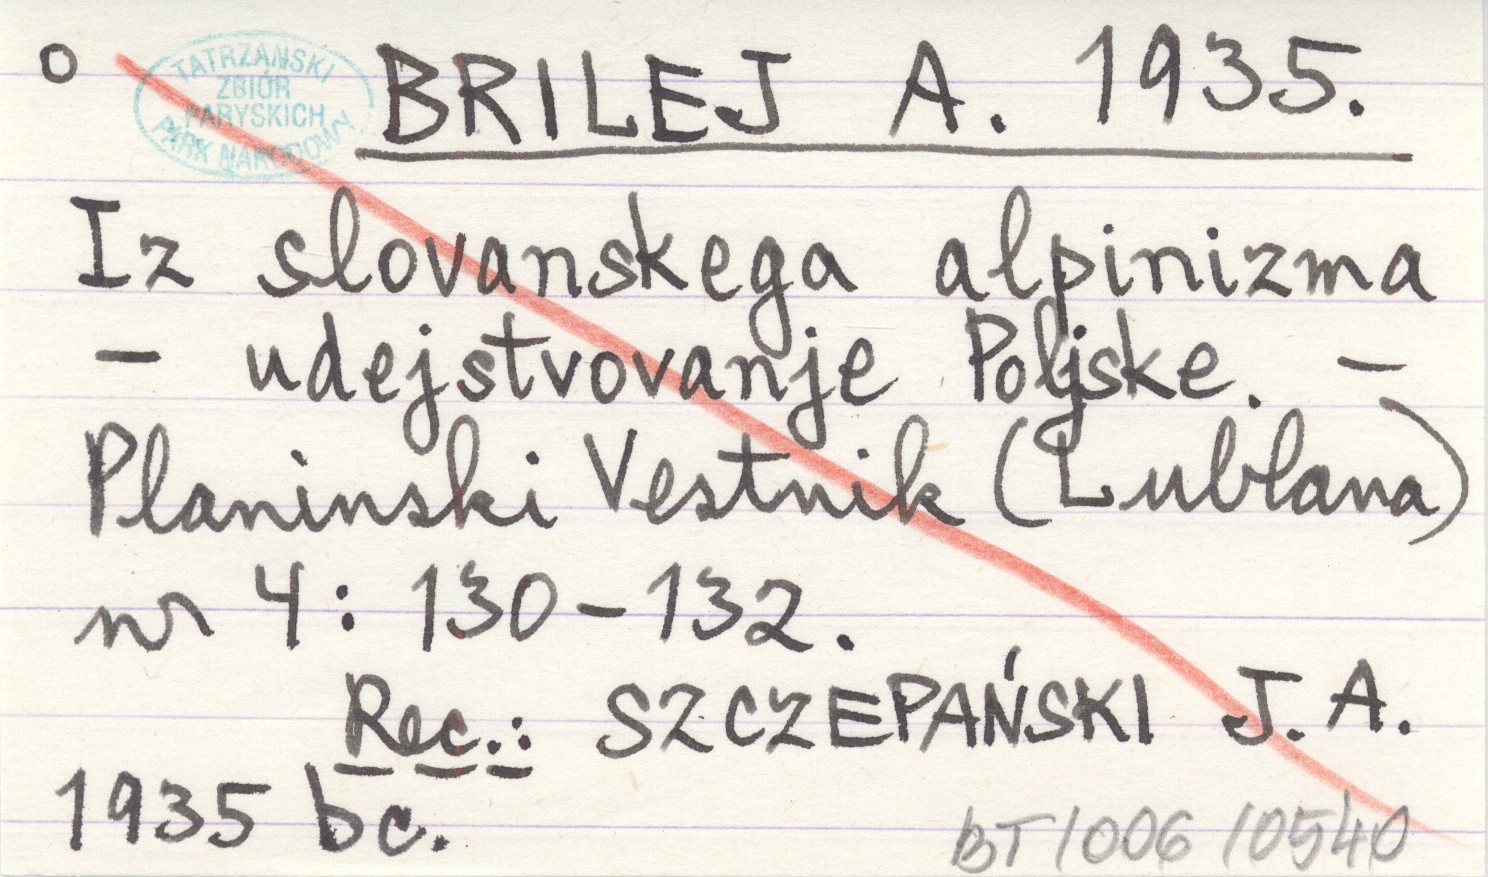 o BRILEJ A. 1935.
TATRZAŃSKI
ZBIÓR
PARYSKICH
PARK NARODOWY
Iz slovanskega alpinizma
– udejstvovanje Poljske. –
Planinski Vestnik (Lublana)
nr 4: 130–132.
Rec.: SZCZEPAŃSKI J. A.
1935 bc.
BT/006/0540